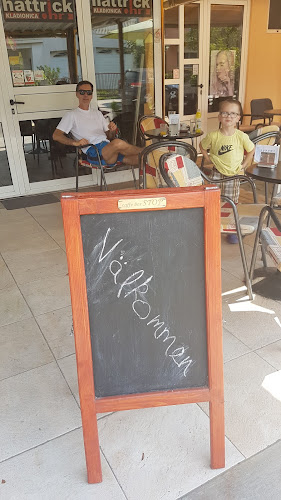 hattrick
KLADIONICA
hattrick
KLADIONICA
Välkommen